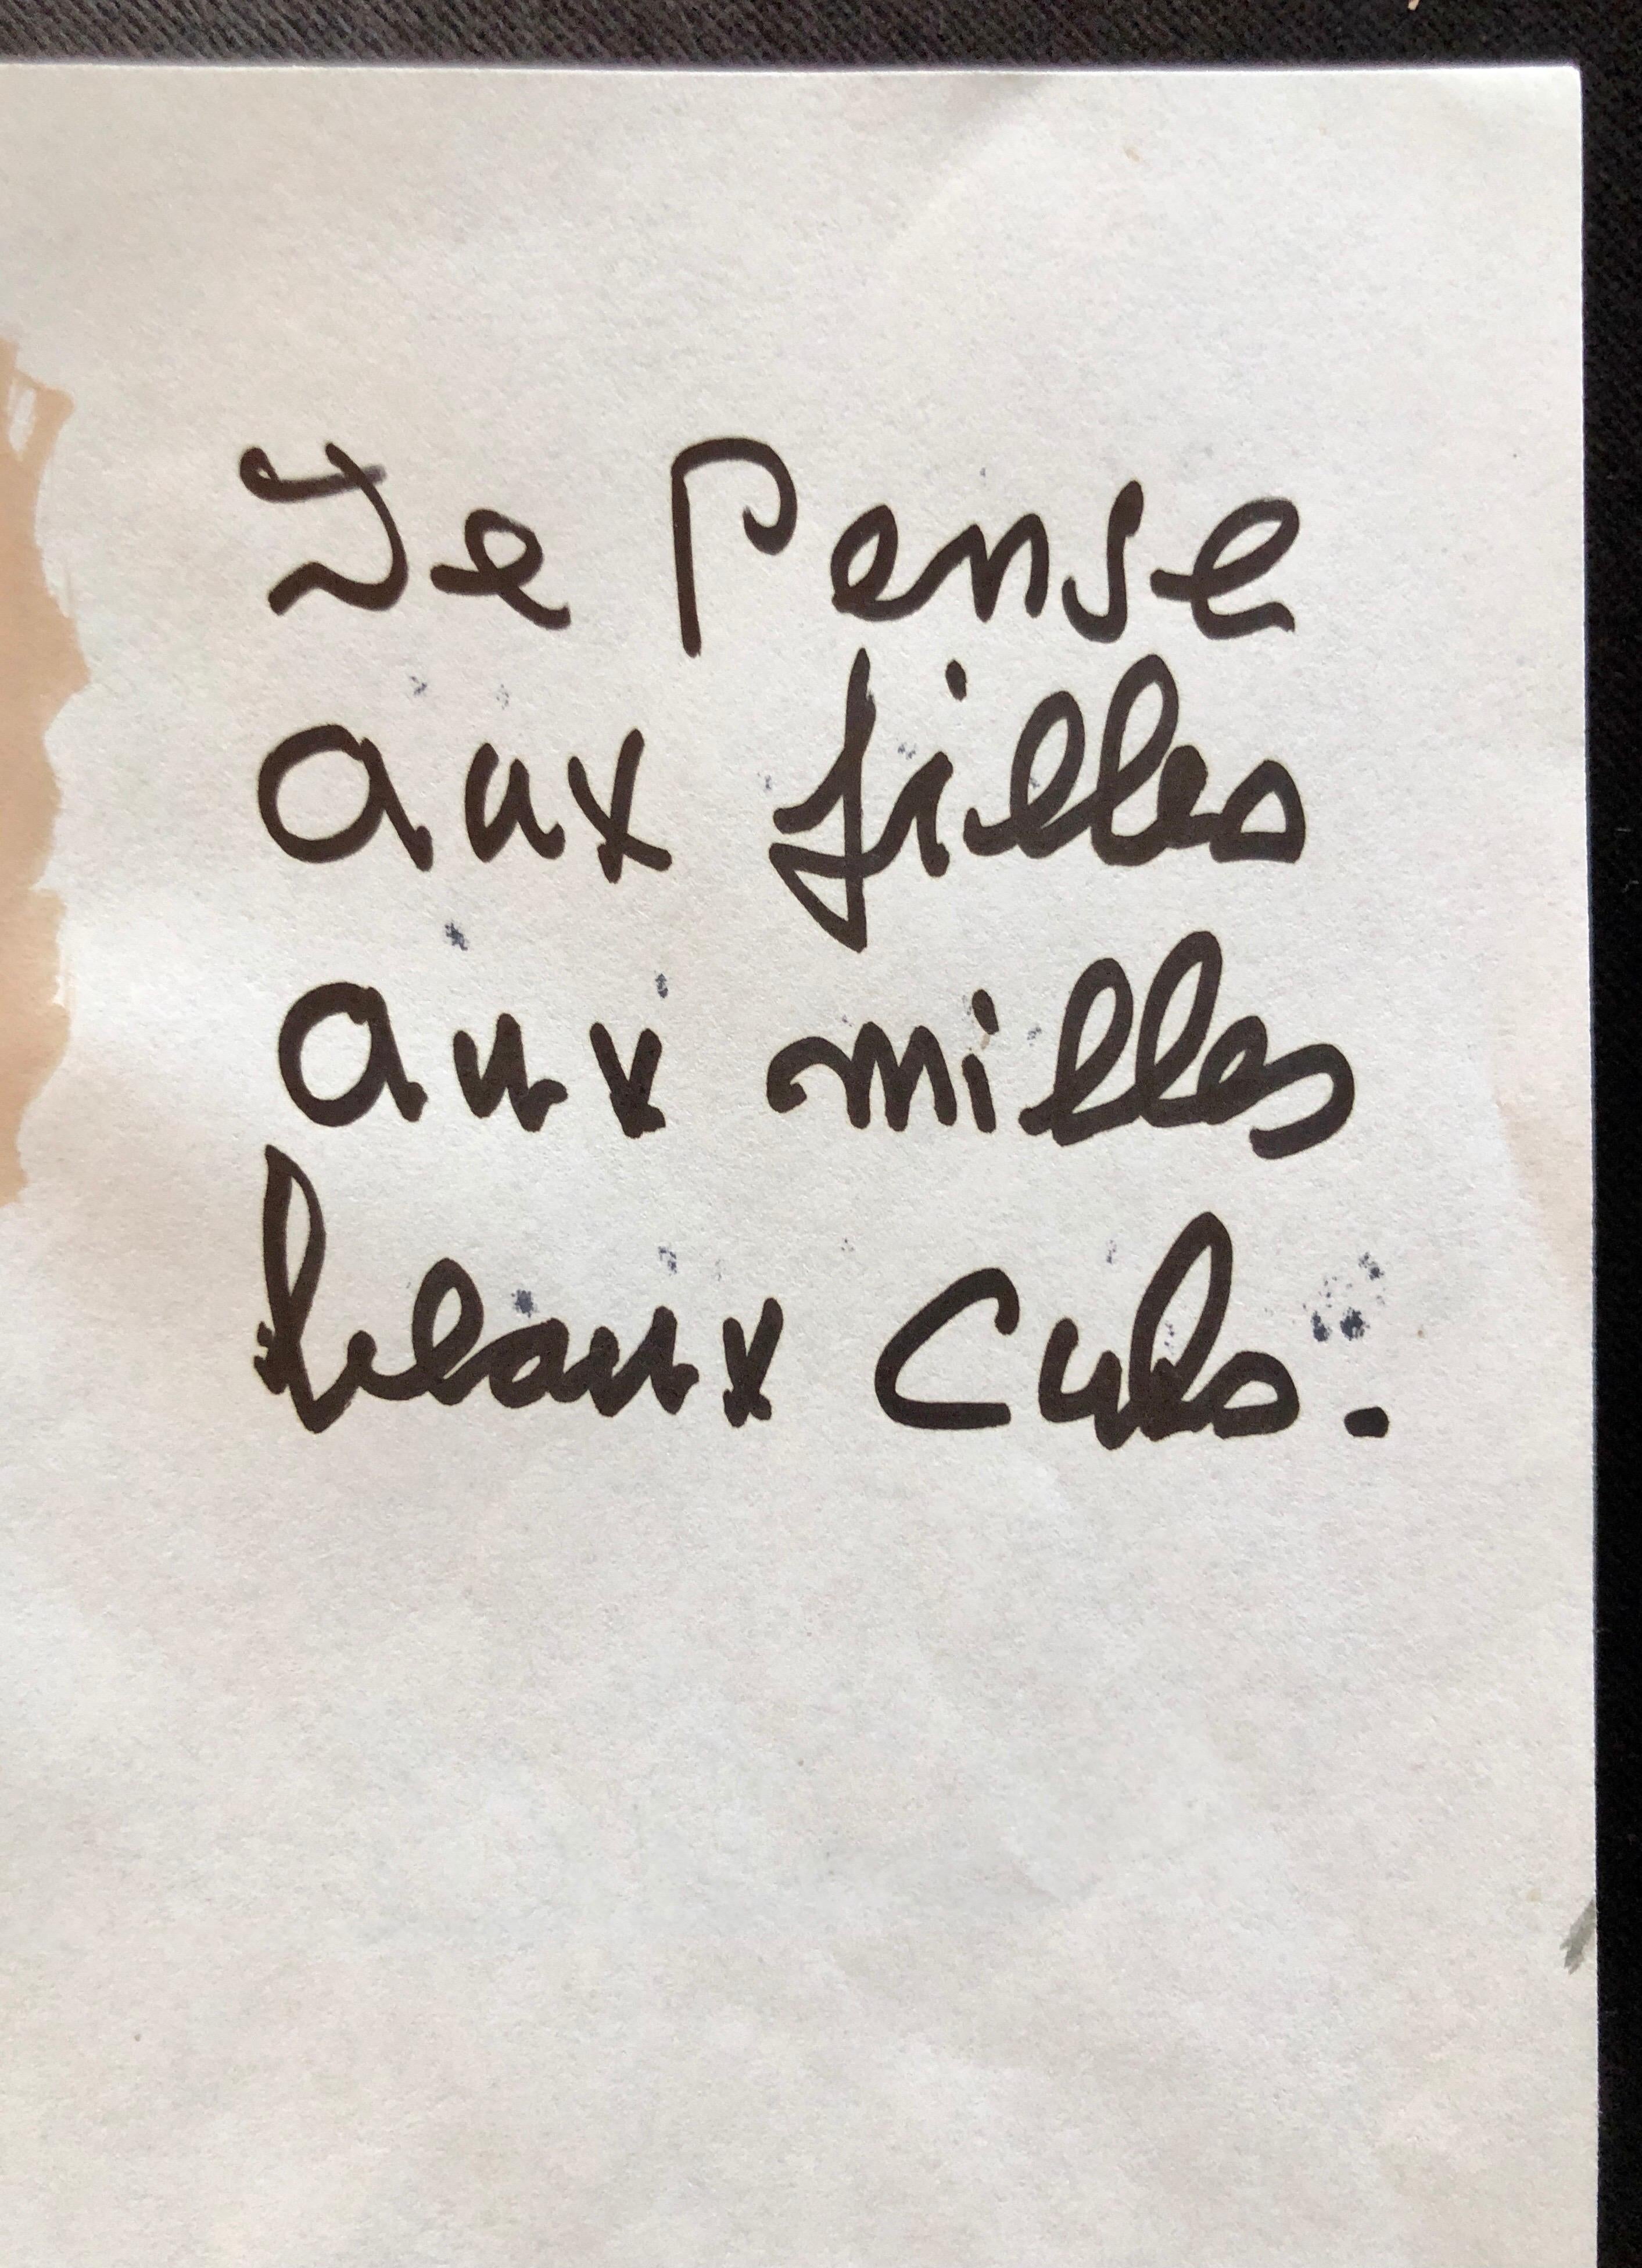 Je Pense
aux filles
aux milles
beaux Culs.